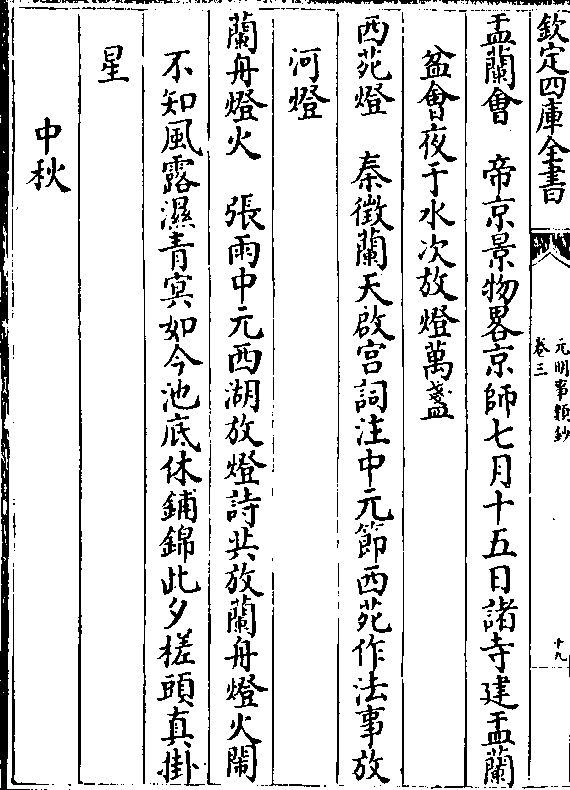 欽定四庫全書
元明事類鈔
卷三
十九
盂蘭會　帝京景物畧京師七月十五日諸寺建盂蘭
盆會夜于水次放燈萬盞
西苑燈　秦徵蘭天啟宫詞注中元節西苑作法事放
河燈
蘭舟燈火　張雨中元西湖放燈詩共放蘭舟燈火閙
不知風露濕青冥如今池底休鋪錦此夕槎頭真掛
星
中秋